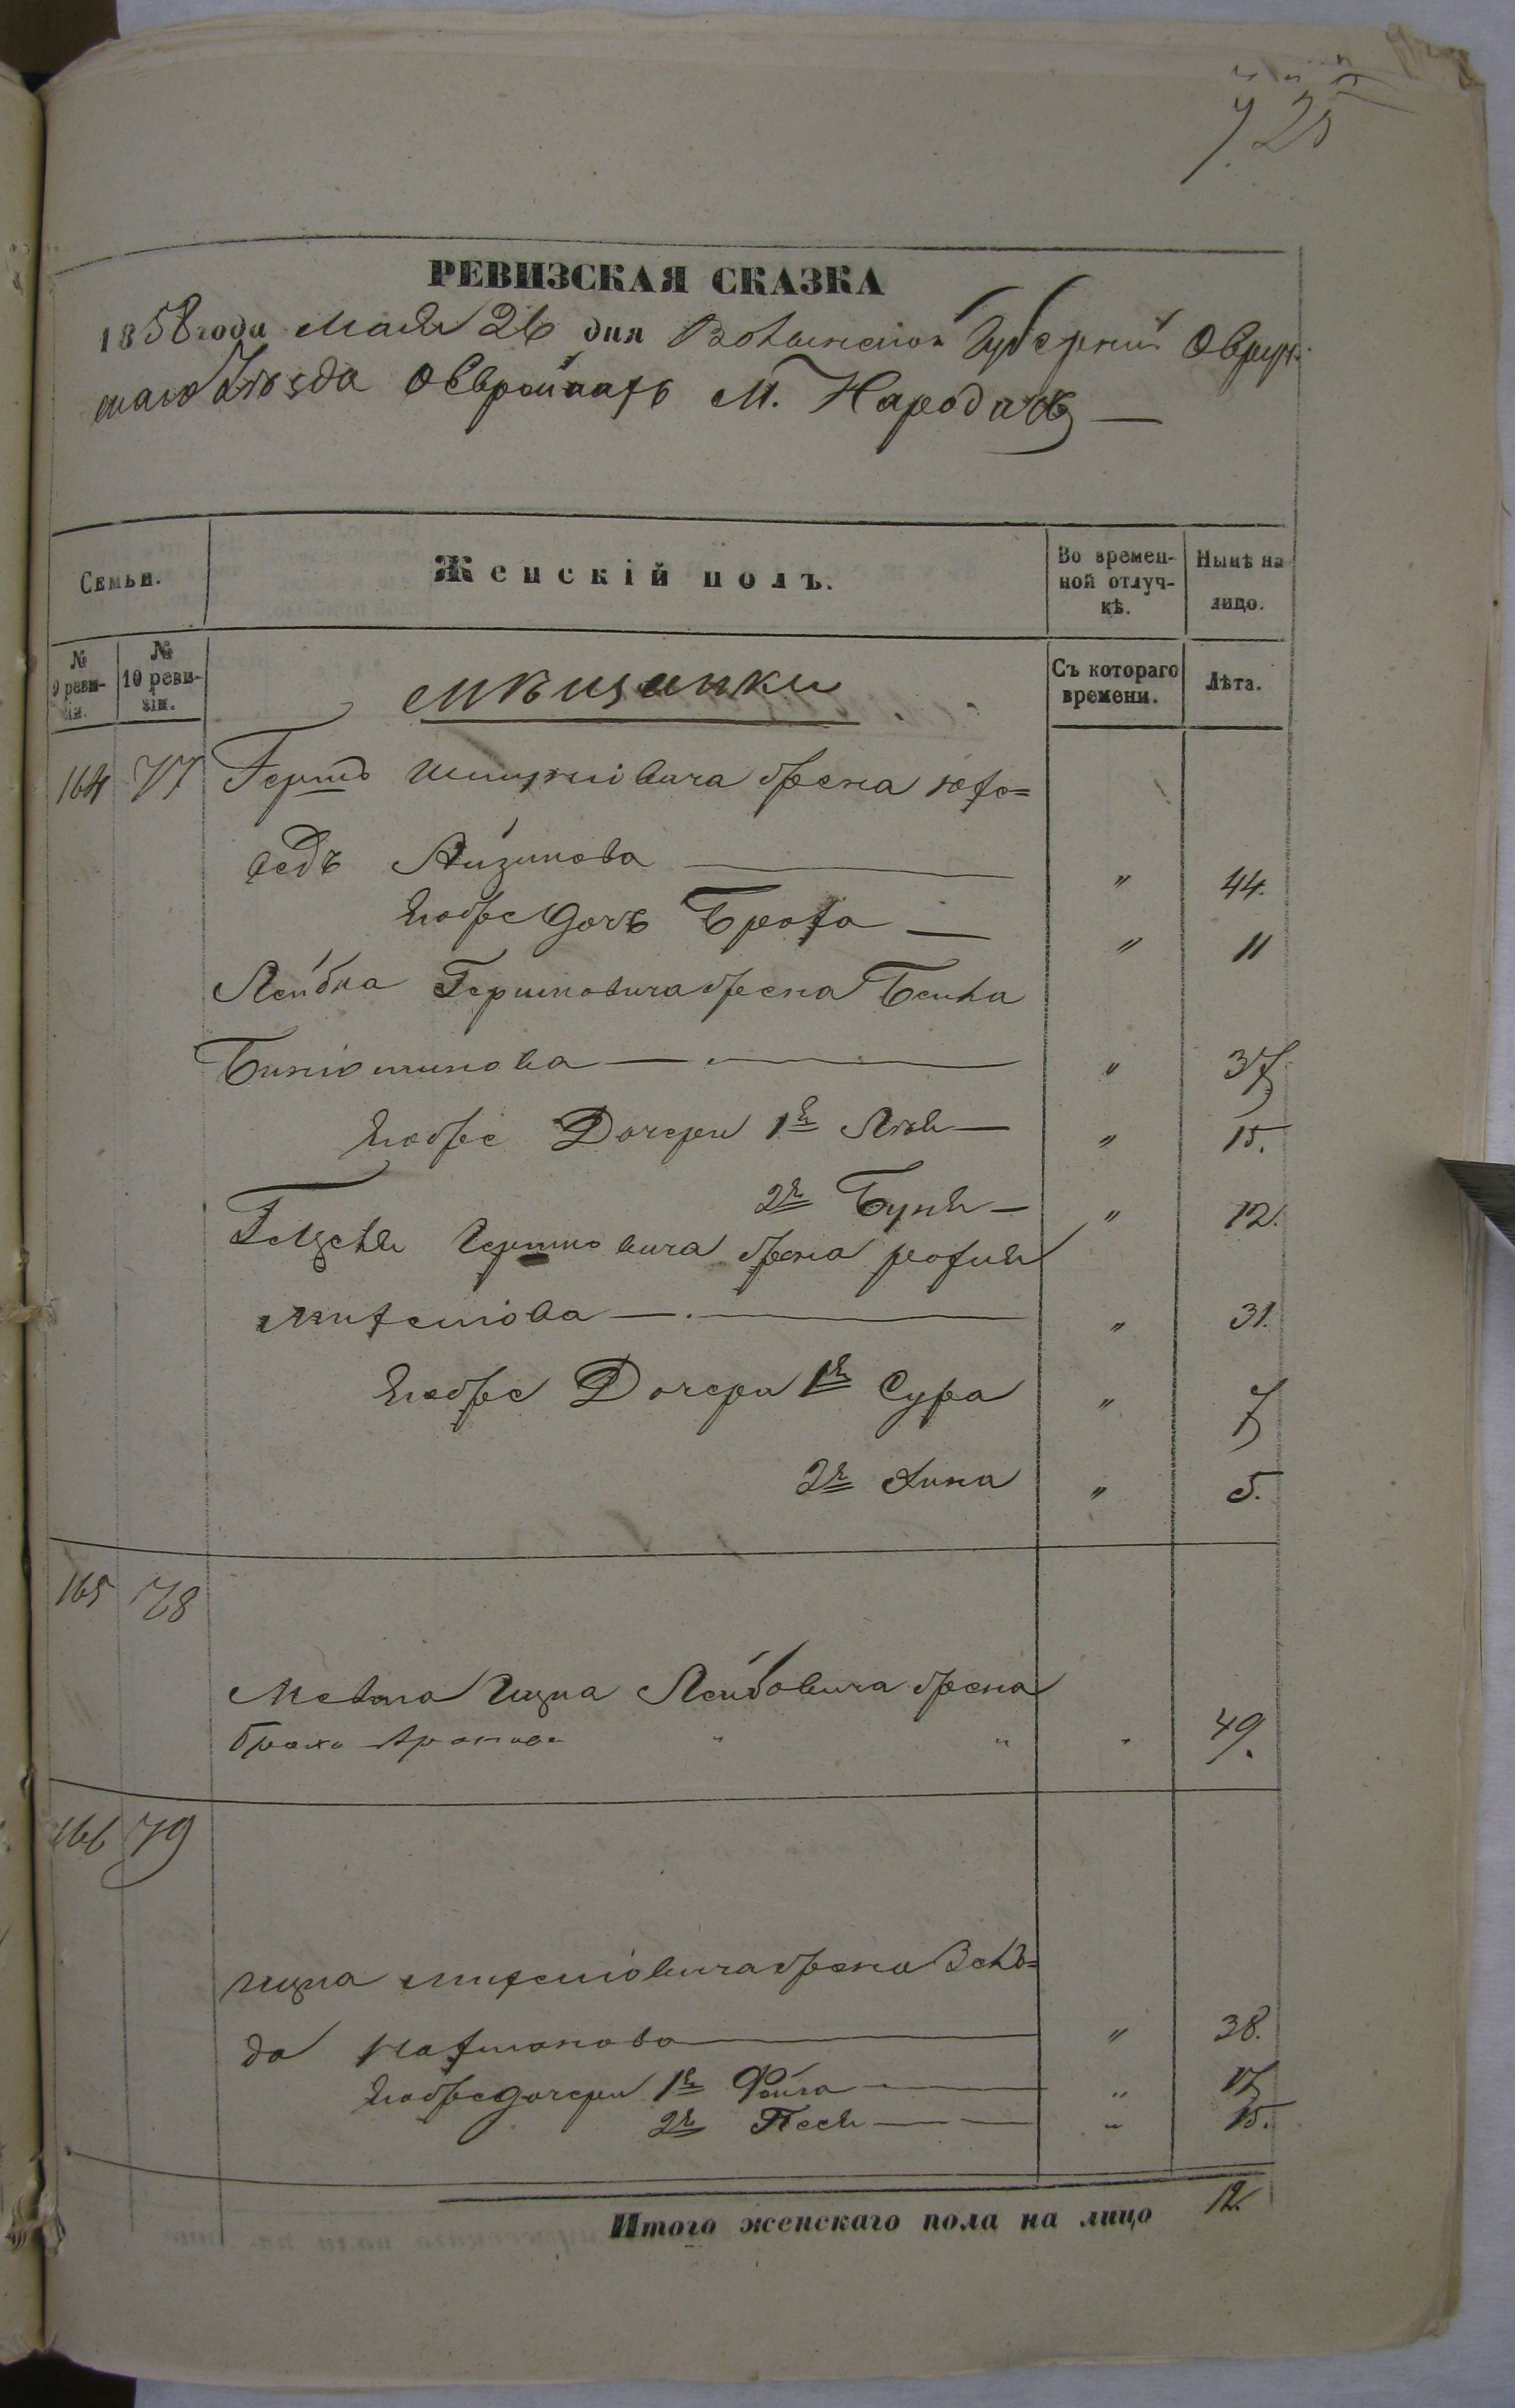 25
РЕВИЗСКАЯ СКАЗКА
1858 года Мая 26 дня Волынской Губерніи Овруч
скаго Уезда о Евреяхъ М. Народичъ
Семьи.
Женскій полъ.
Во времен-
ной отлуч-
кѣ.
Нынѣ на
лицо.
№
9 реви-
зіи.
№
10 реви-
зіи.
Мѣщанки
Съ котораго
времени.
Лѣта.
164 77 жена Хо=
Айзикова " 44.
Его же дочь Броха " 11
Лейбка Гершковича жена Бейла
Биніоминова " 37
Его же Дочери 1я Лея " 15.
2я Буня " 12.
Гершковича жена Рохля
" 31.
Его же Дочери 1я Сура " 7
2я " 5.
165 78
Ицка Лейбовича жена
Броха Аронова " " " 49.
166 79
Ицка жена Вель=
да Нахманова " 38.
Его же дочери 1я Фейга " 17
2я Песя " 15.
Итого женскаго пола на лицо 12.